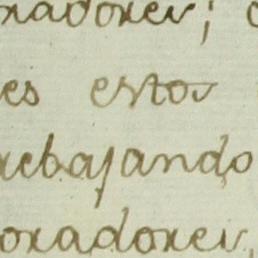 oradores; c
es estos
rebajando
oradores,